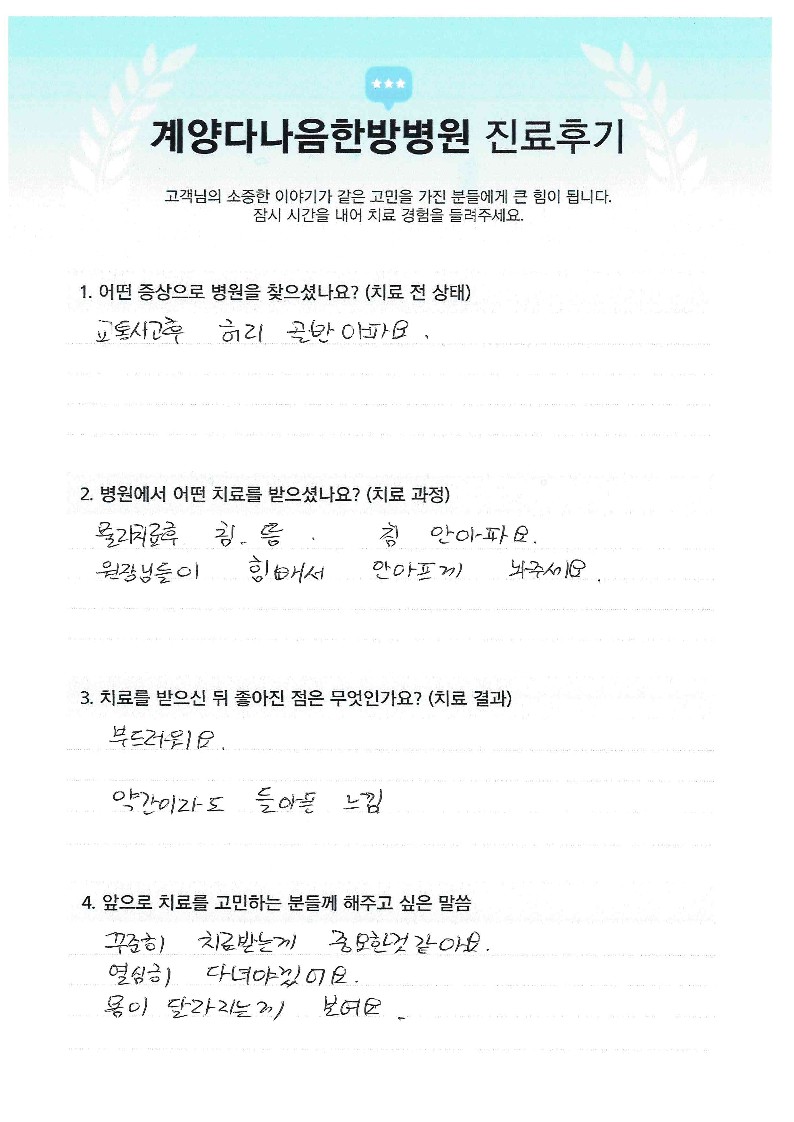 계양다나음한방병원 진료후기
고객님의 소중한 이야기가 같은 고민을 가진 분들에게 큰 힘이 됩니다.
잠시 시간을 내어 치료 경험을 들려주세요.
1. 어떤 증상으로 병원을 찾으셨나요? (치료 전 상태)
교통사고후 허리 골반 아파요.
2. 병원에서 어떤 치료를 받으셨나요? (치료 과정)
물리치료후 침. 뜸 . 침 안아파요.
원장님들이 힘빼서 안아프게 놔주세요.
3. 치료를 받으신 뒤 좋아진 점은 무엇인가요? (치료 결과)
부드러워요.
약간이라도 들아픈 느낌
4. 앞으로 치료를 고민하는 분들께 해주고 싶은 말씀
꾸준히 치료받는게 중요한것 같아요.
열심히 다녀야겠어요.
몸이 달라지는게 보여요.